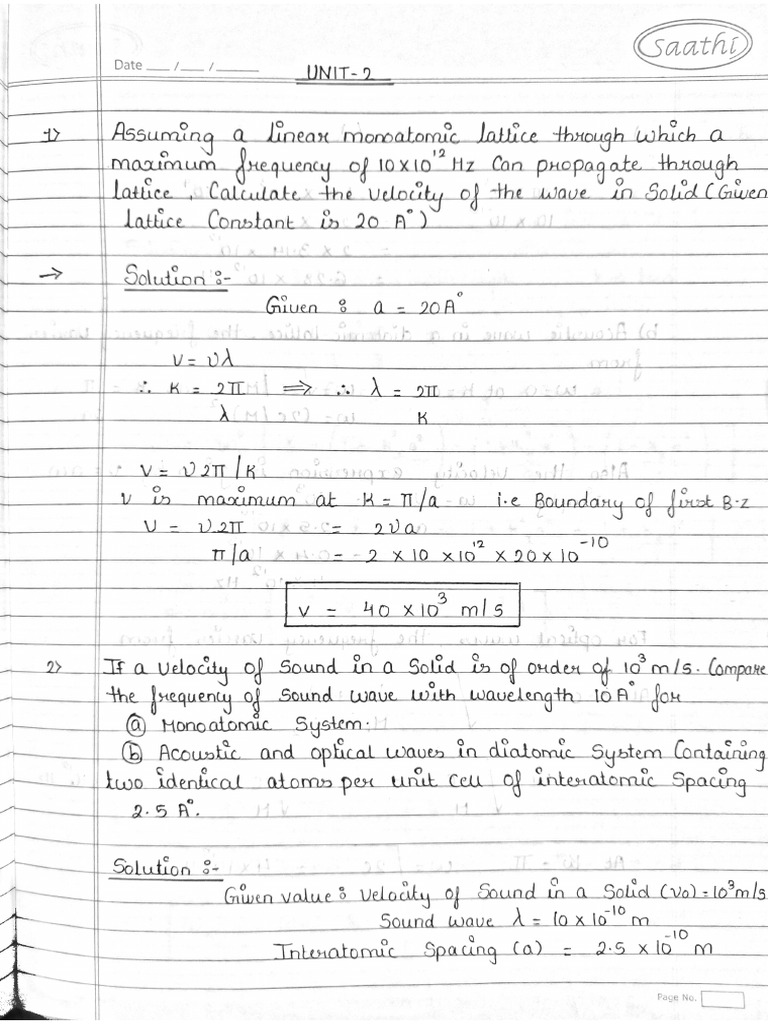 saathi
Date ___/___/_____
UNIT-2
1> Assuming a linear monoatomic lattice through which a
maximum frequency of 10x10¹² Hz Can propagate through
lattice, Calculate the velocity of the wave in Solid (Given
lattice Constant is 20 A°)
→ Solution :-
Given : a = 20A°
v = νλ
∴ K = 2π/λ ⟹ ∴ λ = 2π/K
v = ν2π/K
ν is maximum at K = π/a i.e Boundary of first B.Z
v = ν.2π / π/a = 2νa
= 2 x 10 x 10¹² x 20 x 10⁻¹⁰
v = 40 x 10³ m/s
2> If a velocity of Sound in a Solid is of order of 10³ m/s. Compare
the frequency of Sound wave with wavelength 10A° for
(a) Monoatomic System:
(b) Acoustic and optical waves in diatomic System Containing
two identical atoms per unit cell of interatomic Spacing
2.5 A°.
Solution :-
Given value : Velocity of Sound in a Solid (vo) = 10³ m/s
Sound wave λ = 10 x 10⁻¹⁰ m
Interatomic Spacing (a) = 2.5 x 10⁻¹⁰ m
Page No.